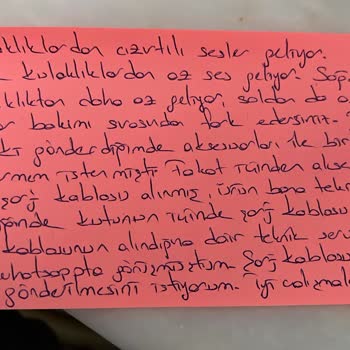 aklıklardan cızırtılı sesler geliyor.
kulaklıklardan az ses geliyor. Sağ
klıktan daha az geliyor, solda da a
bakımı sırasında fark edersiniz.
gönderdiğimde aksesuarları ile bir
rmem istenmişti. Fakat içinden akse
şarj kablosu alınmış, ürün bana tekr
ğinde kutunun içinde şarj kablosu
kablosunun alındığına dair teknik serv
whatsappta görüşmüştüm. Şarj kablos
gönderilmesini istiyorum. İyi çalışmala